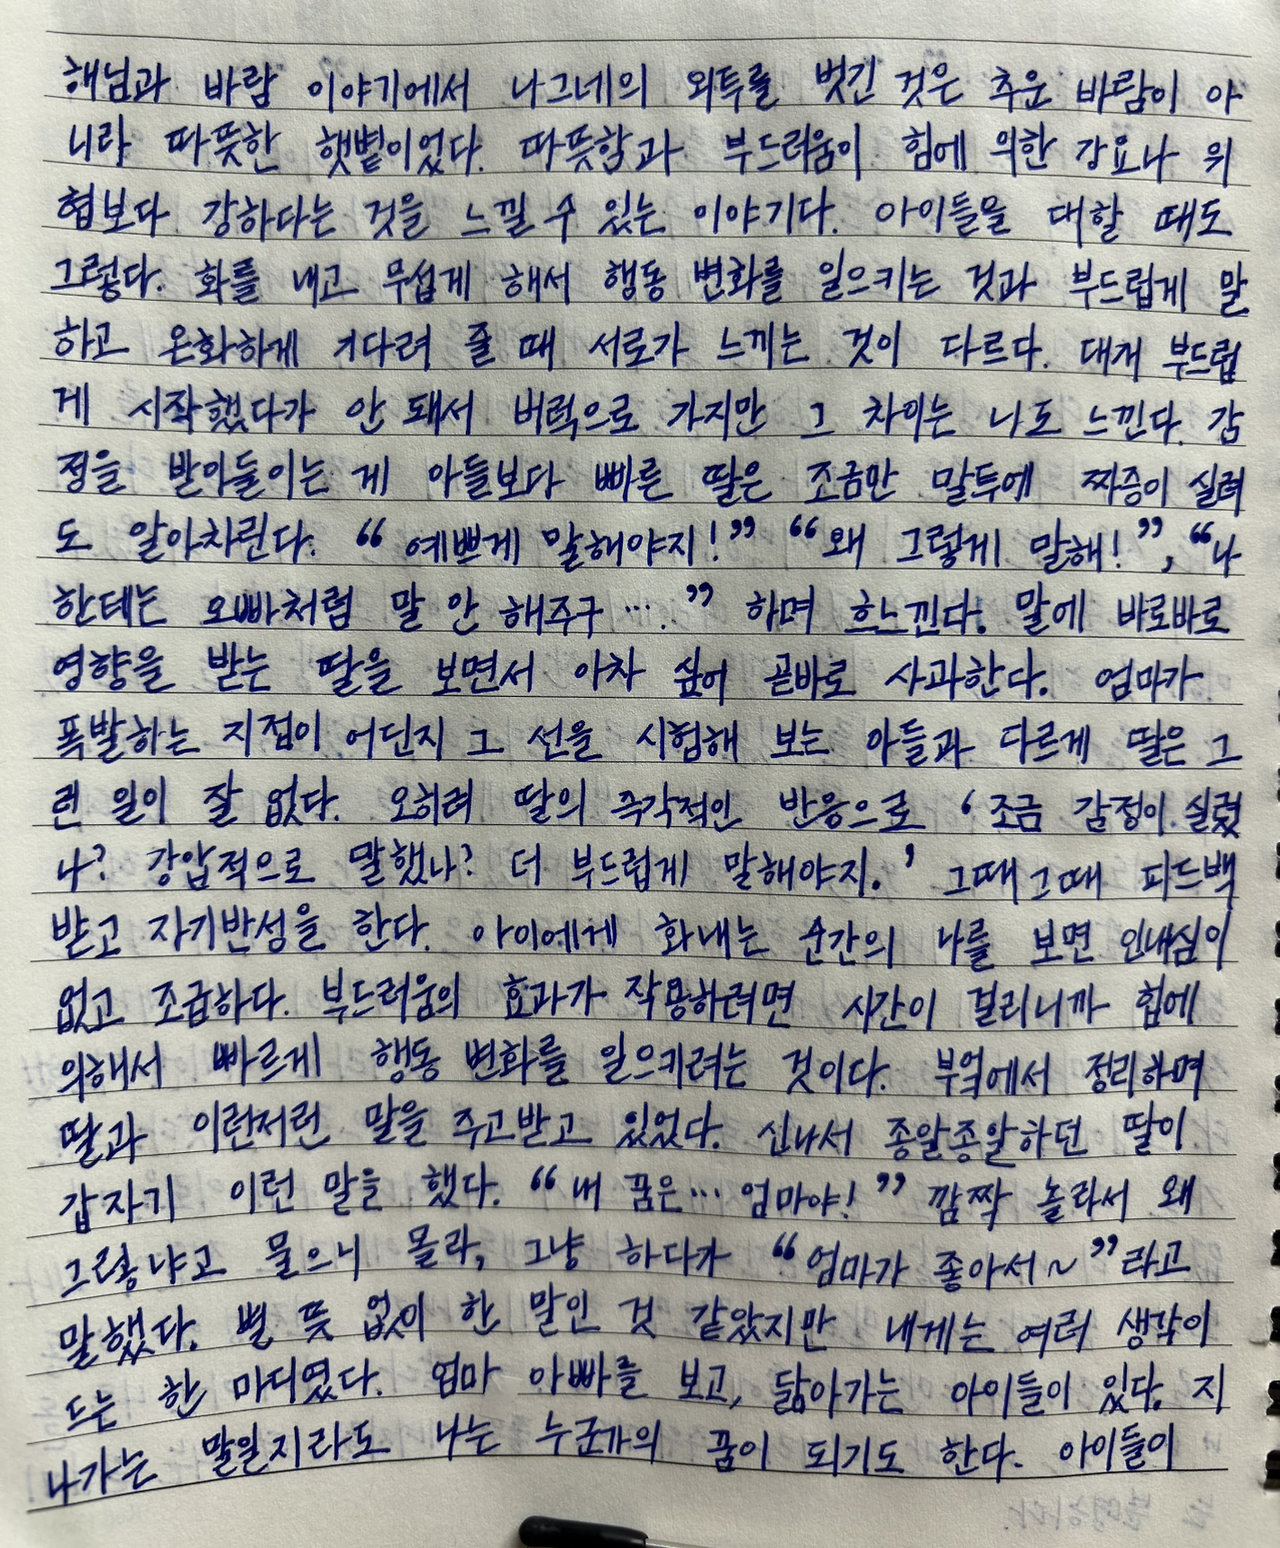 해님과 바람 이야기에서 나그네의 외투를 벗긴 것은 추운 바람이 아
니라 따뜻한 햇볕이었다. 따뜻함과 부드러움이 힘에 의한 강요나 위
협보다 강하다는 것을 느낄 수 있는 이야기다. 아이들을 대할 때도
그렇다. 화를 내고 무섭게 해서 행동 변화를 일으키는 것과 부드럽게 말
하고 온화하게 기다려 줄 때 서로가 느끼는 것이 다르다. 대개 부드럽
게 시작했다가 안 돼서 버럭으로 가지만 그 차이는 나도 느낀다. 감
정을 받아들이는 게 아들보다 빠른 딸은 조금만 말투에 짜증이 실려
도 알아차린다. “예쁘게 말해야지!” “왜 그렇게 말해!”, “나
한테는 오빠처럼 말 안 해주구…” 하며 흐느낀다. 말에 바로바로
영향을 받는 딸을 보면서 아차 싶어 곧바로 사과한다. 엄마가
폭발하는 지점이 어딘지 그 선을 시험해 보는 아들과 다르게 딸은 그
런 일이 잘 없다. 오히려 딸의 즉각적인 반응으로 ‘조금 감정이 실렸
나? 강압적으로 말했나? 더 부드럽게 말해야지.’ 그때그때 피드백
받고 자기반성을 한다. 아이에게 화내는 순간의 나를 보면 인내심이
없고 조급하다. 부드러움의 효과가 작용하려면 시간이 걸리니까 힘에
의해서 빠르게 행동 변화를 일으키려는 것이다. 부엌에서 정리하며
딸과 이런저런 말을 주고받고 있었다. 신나서 종알종알하던 딸이
갑자기 이런 말을 했다. “내 꿈은… 엄마야!” 깜짝 놀라서 왜
그렇냐고 물으니 몰라, 그냥 하다가 “엄마가 좋아서~”라고
말했다. 별 뜻 없이 한 말인 것 같았지만 내게는 여러 생각이
드는 한 마디였다. 엄마 아빠를 보고, 닮아가는 아이들이 있다. 지
나가는 말일지라도 나는 누군가의 꿈이 되기도 한다. 아이들이